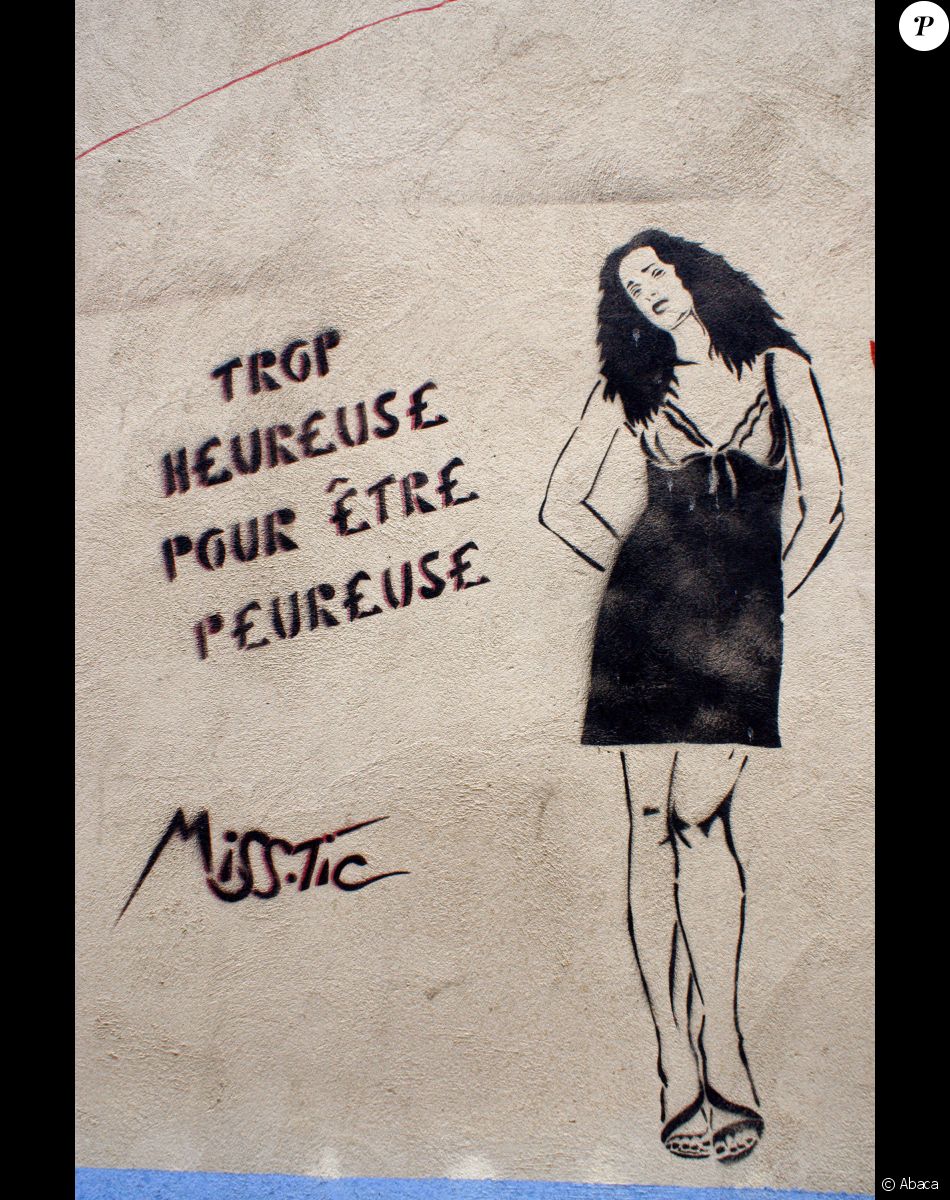 P
TROP
HEUREUSE
POUR ÊTRE
PEUREUSE
MiSS.TiC
© Abaca